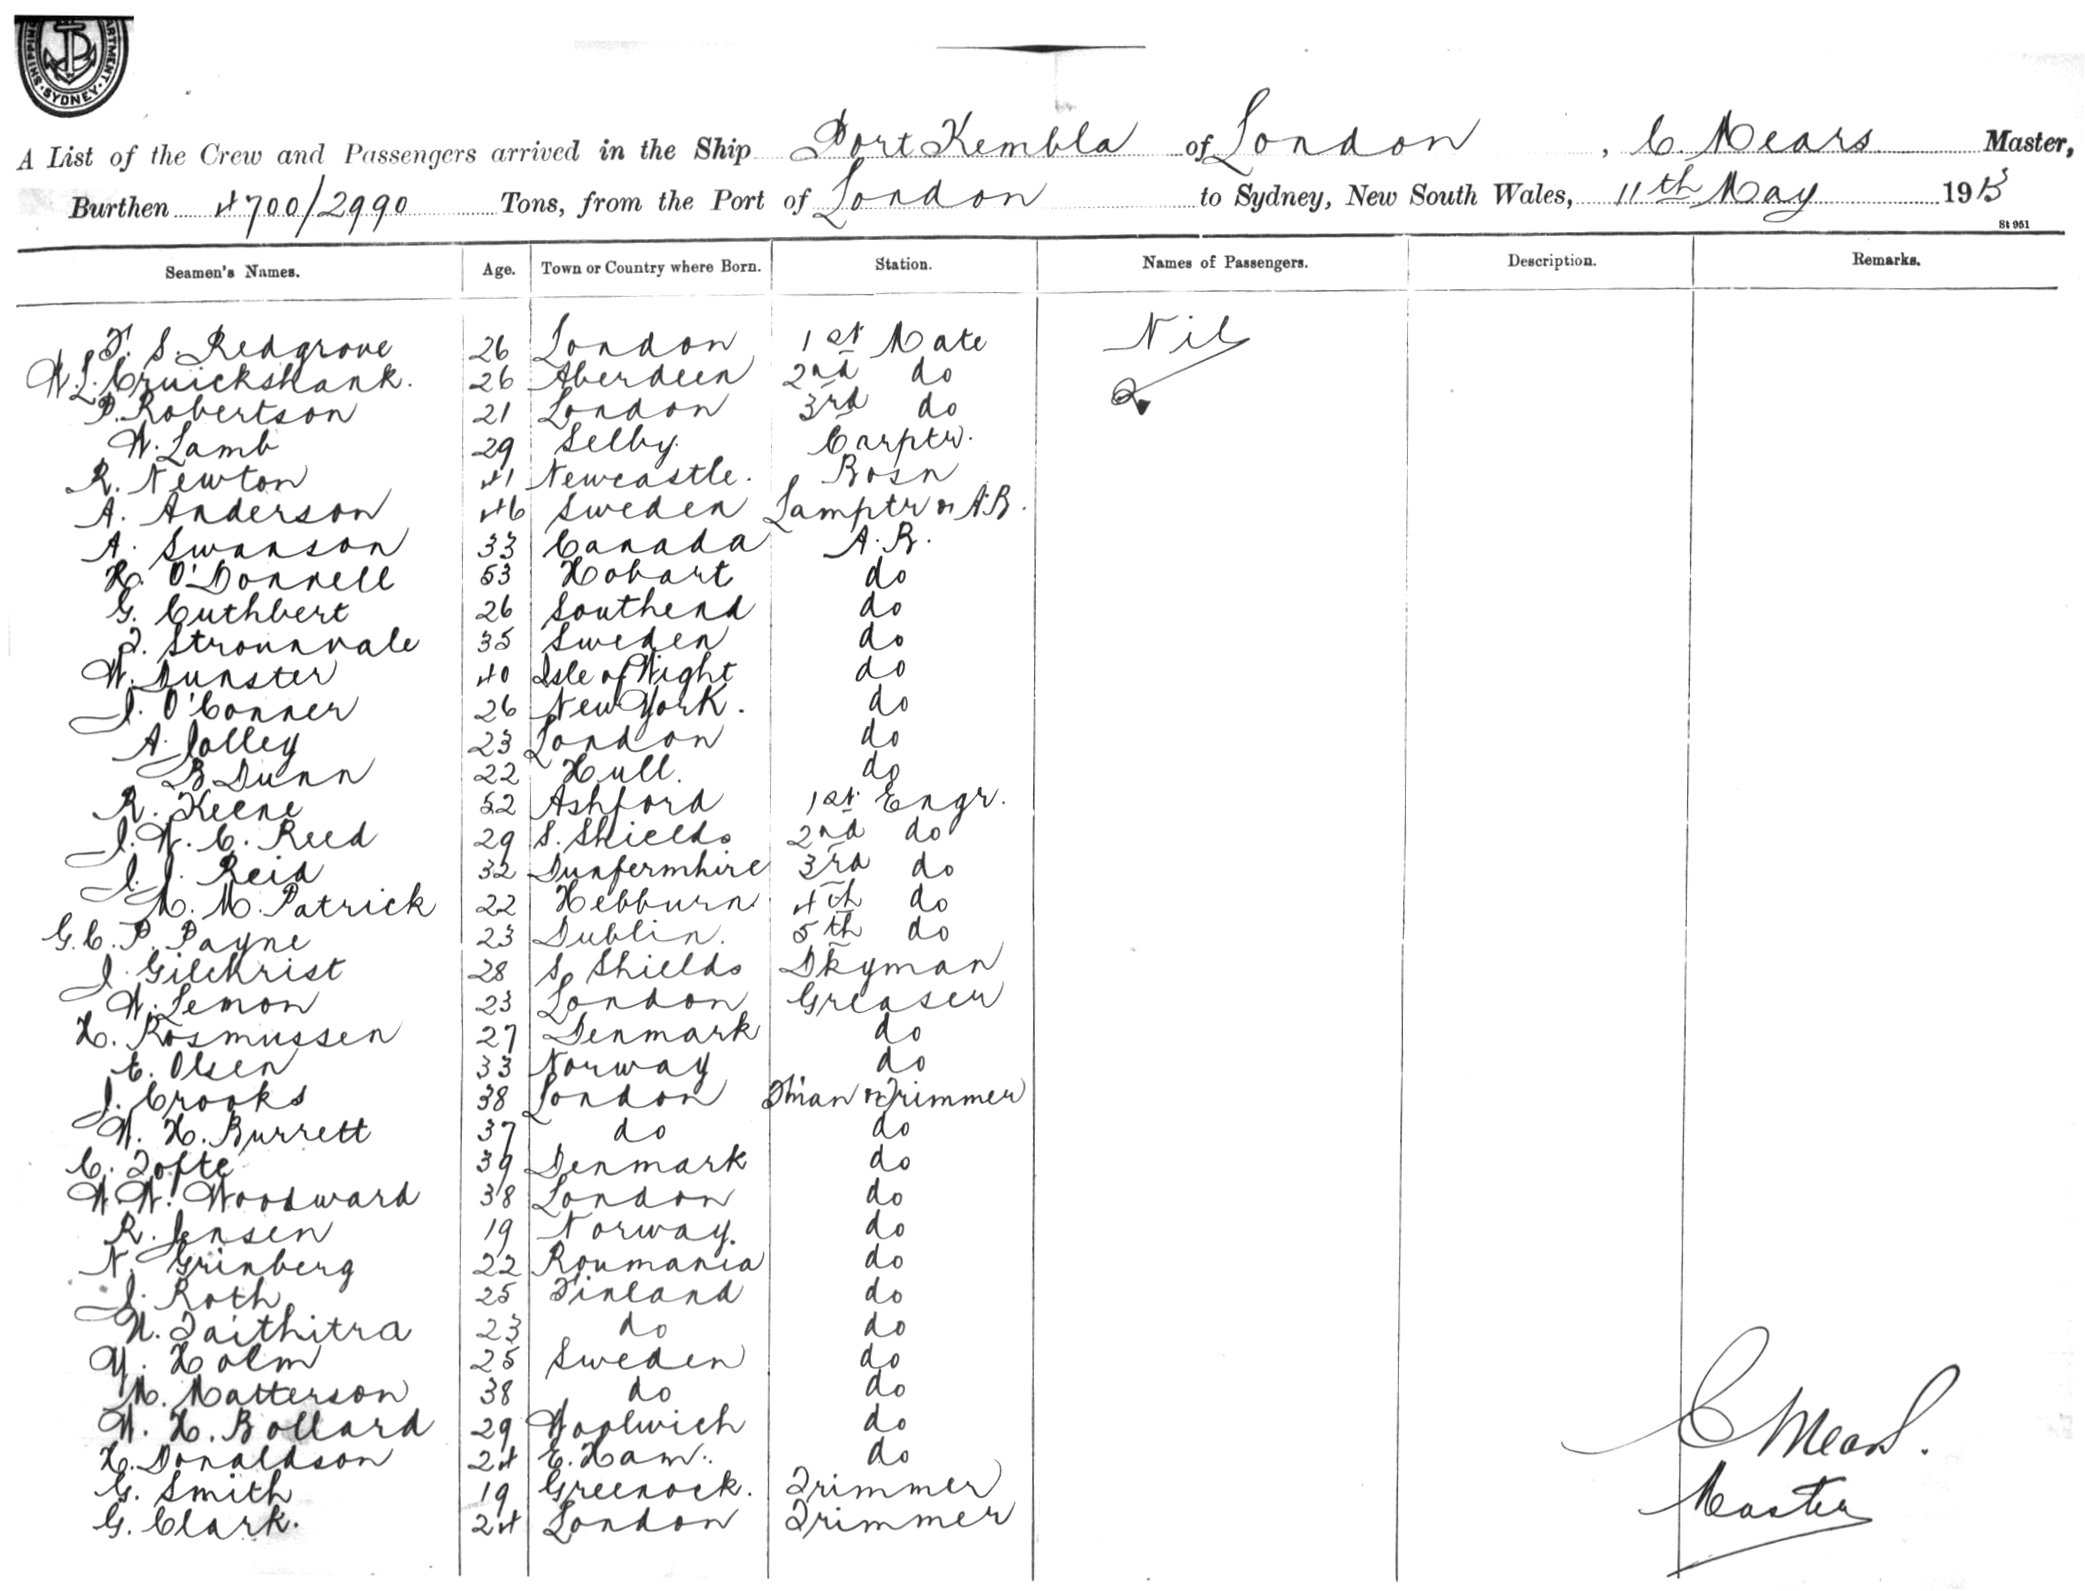 SHIPPING DEPARTMENT SYDNEY
A List of the Crew and Passengers arrived in the Ship Port Kembla of London, C. Mears Master,
Burthen 4700/2990 Tons, from the Port of London to Sydney, New South Wales, 11th May 1915
St 951
Seamen's Names. Age. Town or Country where Born. Station. Names of Passengers. Description. Remarks.
F. S. Redgrove 26 London 1st Mate Nil
W. L. Cruickshank. 26 Aberdeen 2nd do
P. Robertson 21 London 3rd do
W. Lamb 29 Selby. Carptr.
R. Newton 41 Newcastle. Bosn
A. Anderson 46 Sweden Lamptr & A.B.
A. Swanson 33 Canada A.B.
H. O'Donnell 53 Hobart do
G. Cuthbert 26 Southend do
T. Strounvale 35 Sweden do
W. Dunster 40 Isle of Wight do
J. O'Conner 26 New York. do
A. Jolley 23 London do
B. Dunn 22 Hull. do
R. Keene 52 Ashford 1st Engr.
J. W. C. Reed 29 S. Shields 2nd do
J. J. Reid 32 Dunfermhire 3rd do
M. M. Patrick 22 Hebburn 4th do
G. C. P. Payne 23 Dublin. 5th do
J. Gilchrist 28 So Shields Dkyman
W. Lemon 23 London Greaser
H. Rosmussen 27 Denmark do
E. Olsen 33 Norway do
J. Crooks 38 London Fman & Trimmer
W. H. Burrett 37 do do
C. Tofte 39 Denmark do
W. W. Woodward 38 London do
R. Jensen 19 Norway. do
N. Grinberg 22 Roumania do
J. Roth 25 Finland do
N. Taithitra 23 do do
Y. Holm 25 Sweden do
M. Matterson 38 do do
W. H. Bollard 29 Woolwich do
H. Donaldson 24 E. Ham. do
G. Smith 19 Greenock. Trimmer
G. Clark. 24 London Trimmer
C Mears.
Master